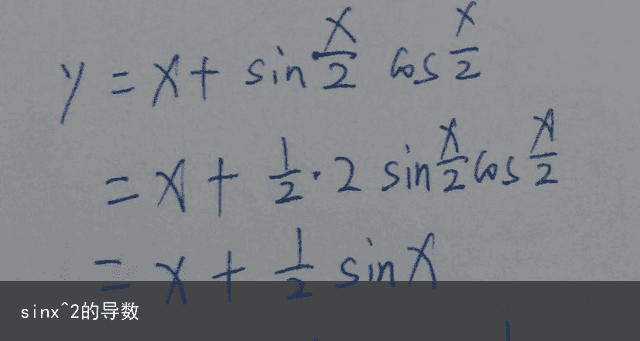 y = x + sin x/2 cos x/2
= x + 1/2 · 2 sin x/2 cos x/2
= x + 1/2 sin x
sinx^2的导数